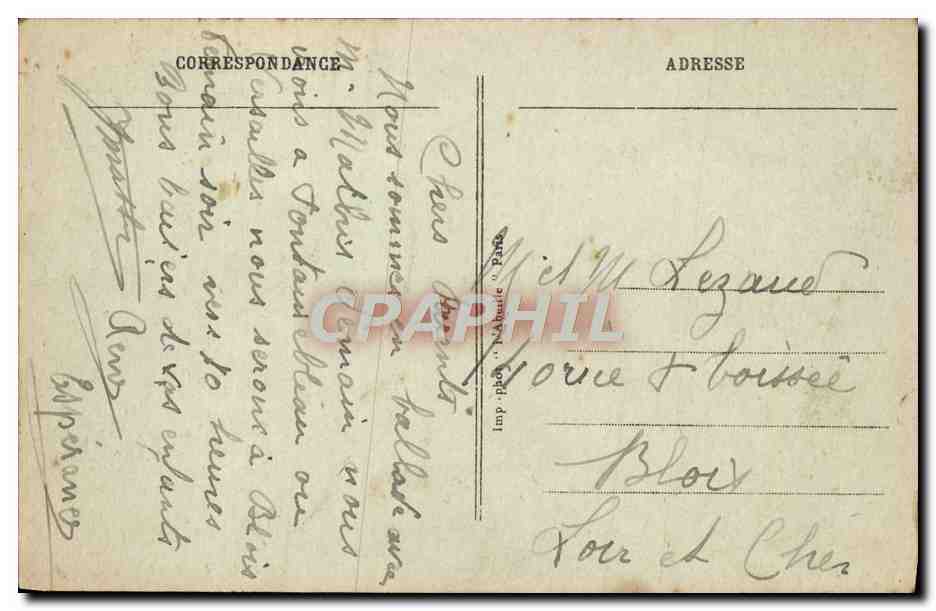 CORRESPONDANCE
ADRESSE
Chers Parents
Nous sommes en ballade avec
M. Malbis demain nous
vons a Fontainebleau ou
Versailles nous serons à Blois
demain soir vers 10 heures
Bons baisers de vos enfants
René
Espérance
Imp.-phot "L'Abeille" Paris
M et M Lezaud
& boissée
Blois
Loir et Cher
CRAPHIL